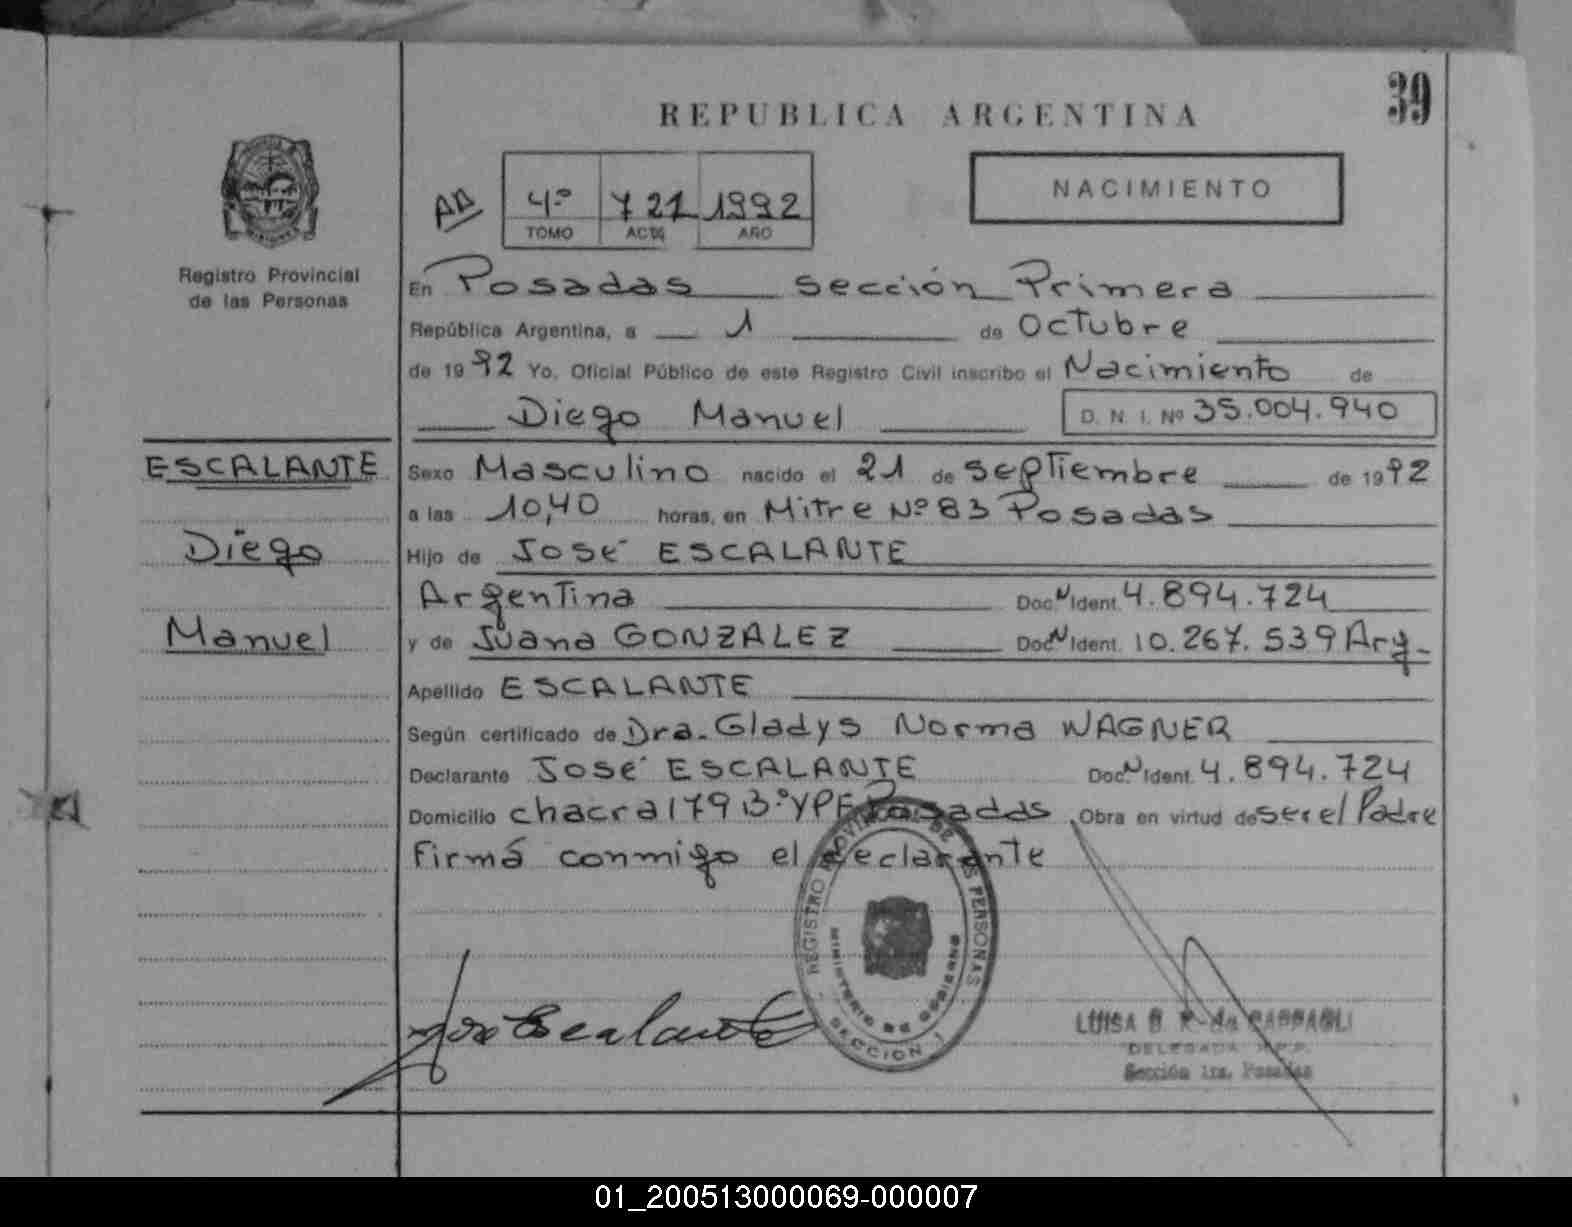 39
REPUBLICA ARGENTINA
NACIMIENTO
AA 4º 721 1992
TOMO ACTA AÑO
Registro Provincial
de las Personas
En Posadas sección Primera
República Argentina, a 1 de Octubre
de 1992 Yo, Oficial Público de este Registro Civil inscribo el Nacimiento de
Diego Manuel D. N. I. Nº 35.004.940
ESCALANTE
Diego
Manuel
Sexo Masculino nacido el 21 de septiembre de 1992
a las 10,40 horas, en Mitre Nº 83 Posadas
Hijo de José ESCALANTE
Argentina Doc. N Ident. 4.894.724
y de Juana GONZALEZ Doc. N Ident. 10.267.539 Arg.
Apellido ESCALANTE
Según certificado de Dra. Gladys Norma WAGNER
Declarante José ESCALANTE Doc. N Ident. 4.894.724
Domicilio chacra 179 Bº YPF Posadas Obra en virtud de ser el Padre
Firmá conmigo el declarante
REGISTRO PROVINCIAL DE LAS PERSONAS
MINISTERIO DE GOBIERNO
SECCION 1
Jose Escalante
LUISA
DELEGADA R.P.P.
Sección 1ra. Posadas
01_200513000069-000007